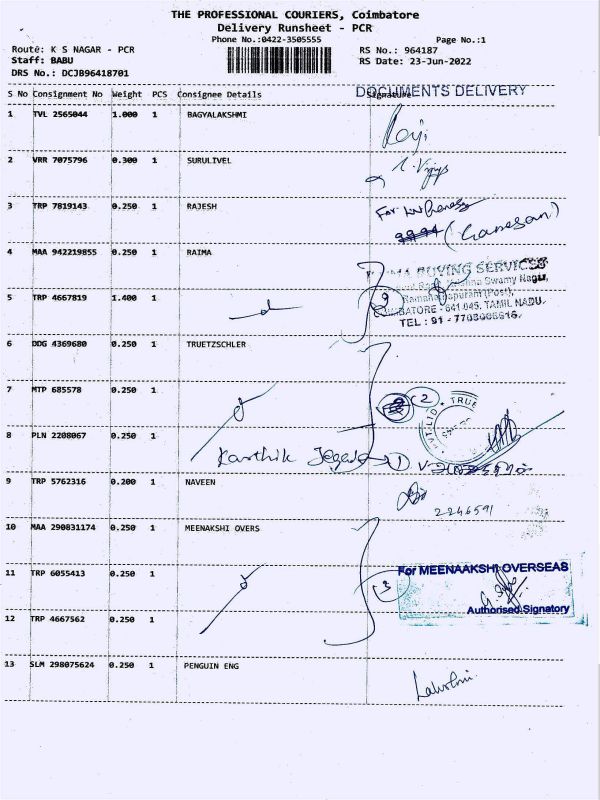 THE PROFESSIONAL COURIERS, Coimbatore
Delivery Runsheet - PCR
Phone No.:0422-3505555 Page No.:1
Route: K S NAGAR - PCR RS No.: 964187
Staff: BABU RS Date: 23-Jun-2022
DRS No.: DCJB96418701
DOCUMENTS DELIVERY
S No Consignment No Weight PCS Consignee Details Signature
1 TVL 2565044 1.000 1 BAGYALAKSHMI
2 VRR 7075796 0.300 1 SURULIVEL
3 TRP 7819143 0.250 1 RAJESH
(Ganesan)
4 MAA 942219855 0.250 1 RAIMA
BUYING SERVICES
Swamy Nagar,
Ramanathapuram (Post),
COIMBATORE - 641 045, TAMIL NADU.
5 TRP 4667819 1.400 1
6 DDG 4369680 0.250 1 TRUETZSCHLER
7 MTP 685578 0.250 1
2
PVT. LTD TRUE
8 PLN 2208067 0.250 1
Karthik 1
9 TRP 5762316 0.200 1 NAVEEN
2246591
10 MAA 290831174 0.250 1 MEENAKSHI OVERS
11 TRP 6055413 0.250 1
3
For MEENAAKSHI OVERSEAS
Authorised Signatory
12 TRP 4667562 0.250 1
13 SLM 298075624 0.250 1 PENGUIN ENG
Lakshmi